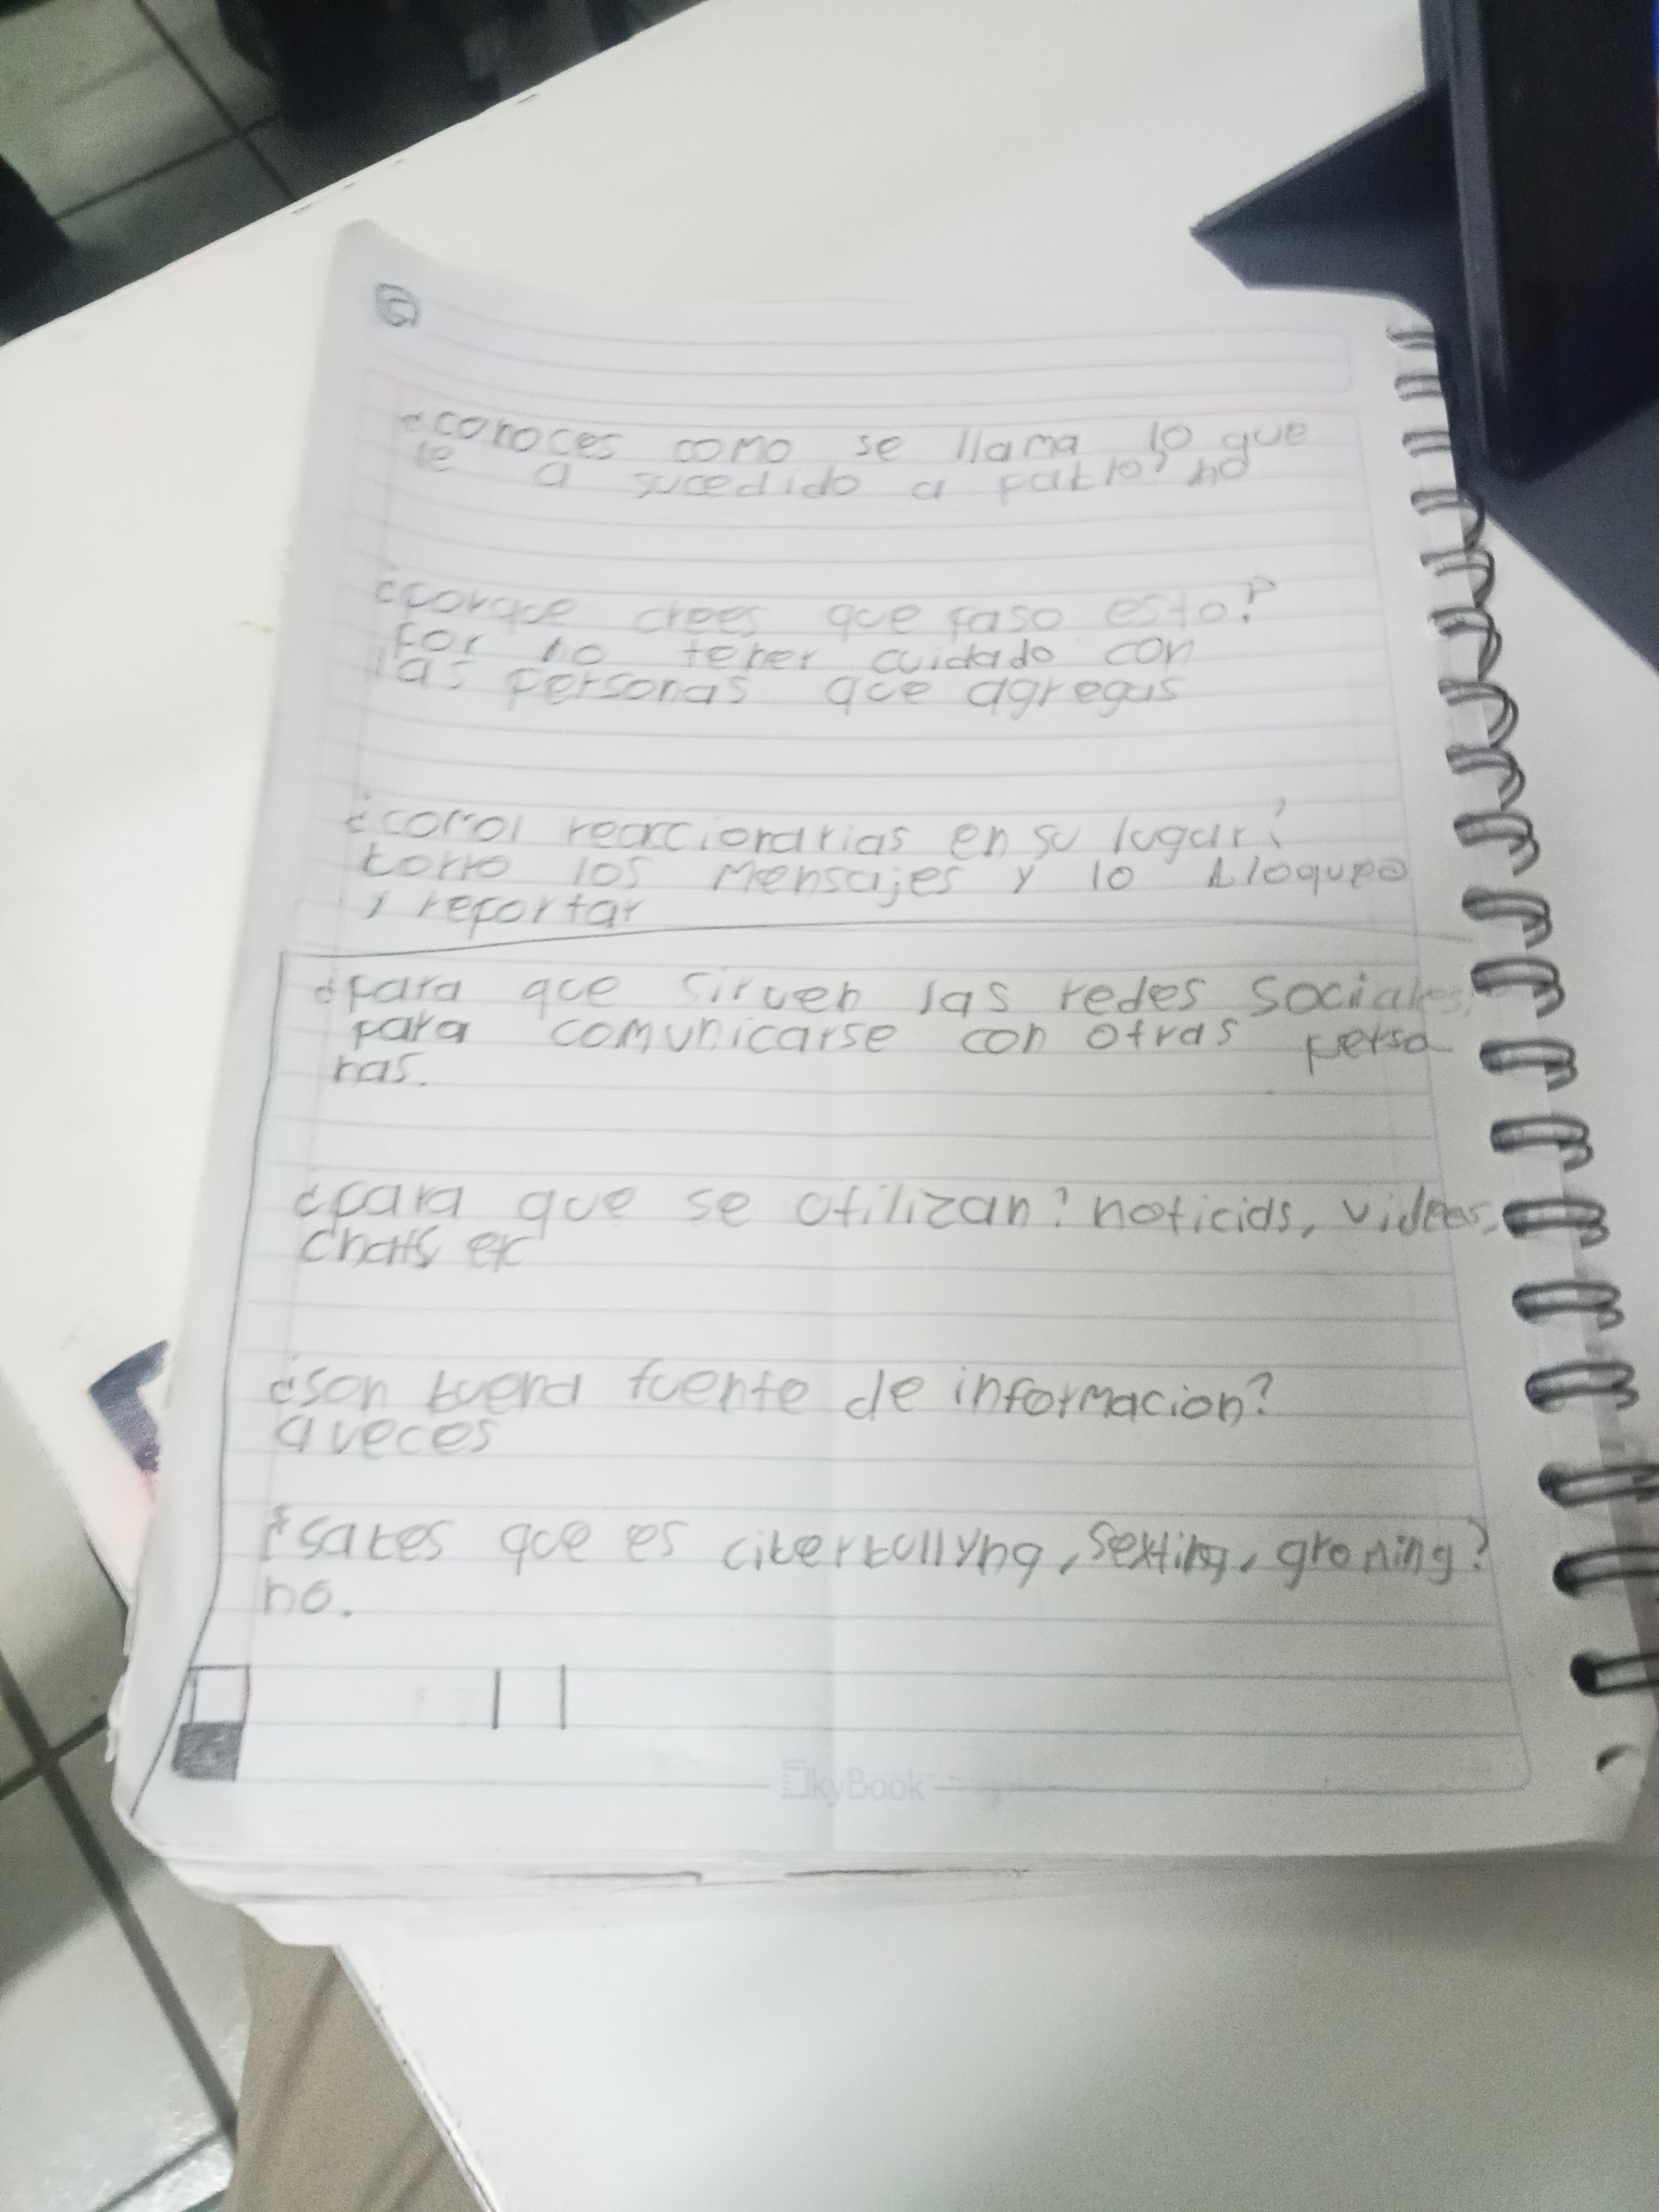 ¿conoces como se llama lo que
le a sucedido a pablo? no
¿porque crees que paso esto?
por no tener cuidado con
las personas que agregas
reaccionarias en su lugar?
borro los mensajes y lo bloqueo
y reportar
¿para que sirven las redes sociales
para comunicarse con otras perso
nas.
¿para que se utilizan? noticias, videos,
chats etc
¿son buena fuente de informacion?
a veces
¿sabes que es ciberbullyng, sexting, groming?
no.
SkyBook